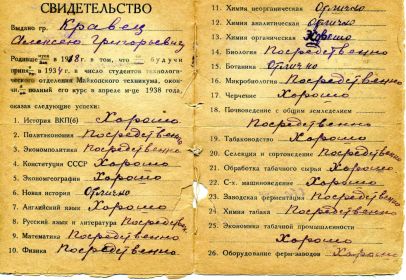 СВИДЕТЕЛЬСТВО
Выдано гр. Кравец
Алексею Григорьевичу
в том, что будучи
принят в 1934 г. в число студентов технологи-
ческого отделения Майкопского техникума, окон-
полный его курс в апреле м-це 1938 года
оказав следующие успехи:
1. История ВКП(б) Хорошо
2. Политэкономия Посредственно
3. Экономполитика Посредственно
4. Конституция СССР Хорошо
5. Экономгеография Хорошо
6. Новая история Отлично
7. Английский язык Хорошо
8. Русский язык и литература Посредствен
9. Математика Посредственно
10. Физика Посредственно
11. Химия неорганическая Отлично
12. Химия аналитическая Отлично
13. Химия органическая Хорошо
14. Биология Посредственно
15. Ботаника Отлично
16. Микробиология Посредственно
17. Черчение Хорошо
18. Почвоведение с общим земледелием
Посредственно
19. Табаководство Хорошо
20. Селекция и сортоведение Посредственно
21. Обработка табачного сырья Хорошо
22. С-х. машиноведение Хорошо
23. Заводская ферментация Посредственно
24. Химия табака Посредственно
25. Экономика табачной промышленности
Хорошо
26. Оборудование ферм-заводов Хорошо